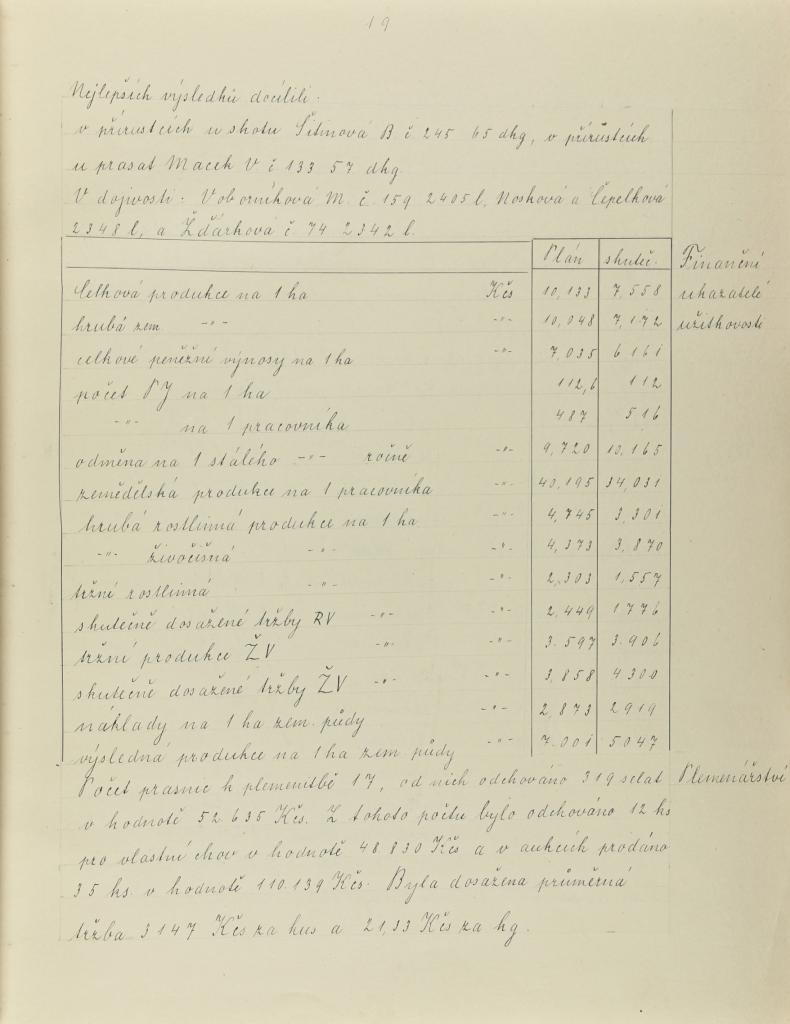 19
Nejlepších výsledků docílili:
v přírustcích u skotu Šitinová B č 245 65 dkg, v přírůstcích
u prasat Macek V č 133 57 dkg.
V dojivosti: Voborníková M. č. 159 2405 l, Nosková a Čepelková
2348 l, a Žďárková č 74 2342 l.
Plán skuteč. Finanční
Celková produkce na 1 ha Kčs 10,133 7,558 ukazatelé
hrubá zem. -"- -"- 10,048 7,172 užitkovosti
celkové peněžní výnosy na 1 ha -"- 7,035 6161
počet PJ na 1 ha 112,6 112
-"- na 1 pracovníka 487 516
odměna na 1 stálého -"- ročně -"- 9,720 10,165
zemědělská produkce na 1 pracovníka -"- 40,195 34,031
hrubá rostlinná produkce na 1 ha -"- 4,745 3,301
-"- živočišná -"- -"- 4,373 3,870
tržní rostlinná -"- -"- 2,303 1,557
skutečně dosažené tržby RV -"- -"- 2,449 1776
tržní produkce ŽV -"- -"- 3.597 3.906
skutečně dosažené tržby ŽV -"- -"- 3,858 4300
náklady na 1 ha zem. půdy -"- 2,873 2919
výsledná produkce na 1 ha zem půdy -"- 7.001 5047
Počet prasnic k plemenitbě 17, od nich odchováno 319 selat Plemenářství
v hodnotě 52.635 Kčs. Z tohoto počtu bylo odchováno 12 ks
pro vlastní chov v hodnotě 48 830 Kčs a v aukcích prodáno
35 ks. v hodnotě 110.139 Kčs. Byla dosažena průměrná
tržba 3147 Kčs za kus a 21,33 Kčs za kg.